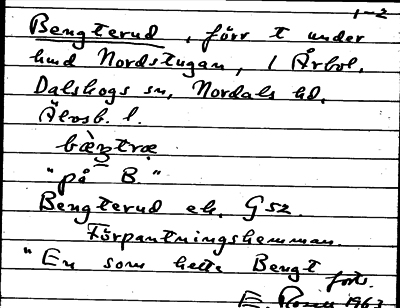 1-2
Bengterud, förr t under
hmd Nordstugan, 1 Årbol.
Dalskogs sn, Nordals hd.
Älvsb. l.
bæ̀ŋtrœ
"på B."
Bengterud ek. G52.
Förpantningshemman.
"En som hette Bengt
forts.
E. Rosen 1963